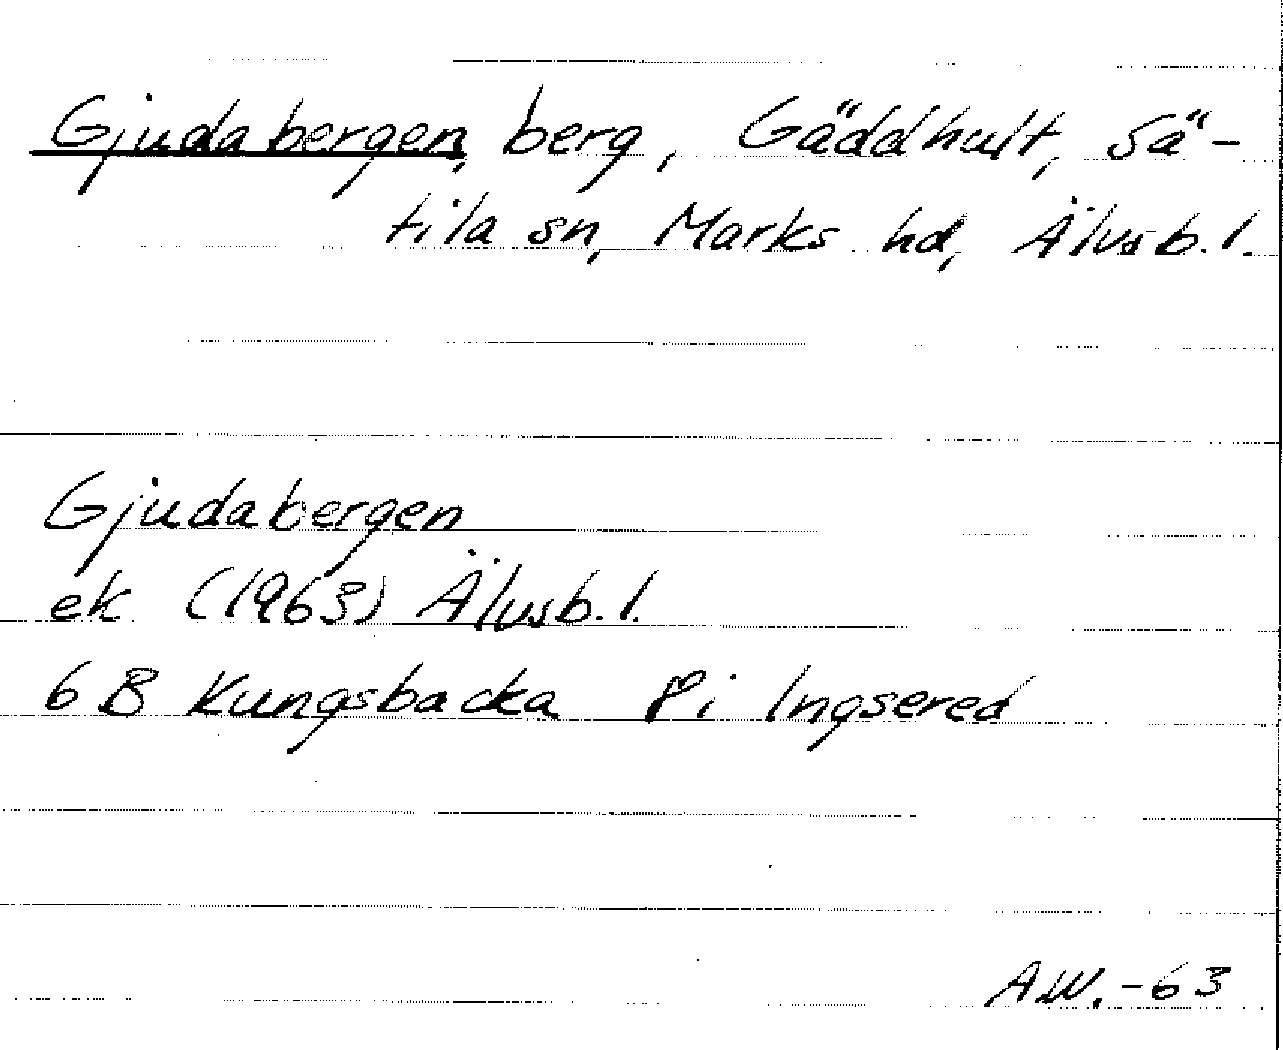 Gjudabergen, berg, Gäddhult, Sä-
tila sn, Marks hd, Älvsb. l.
Gjudabergen
ek (1963) Älvsb. l.
6 B Kungsbacka 8i Ingsered
A.W. -63